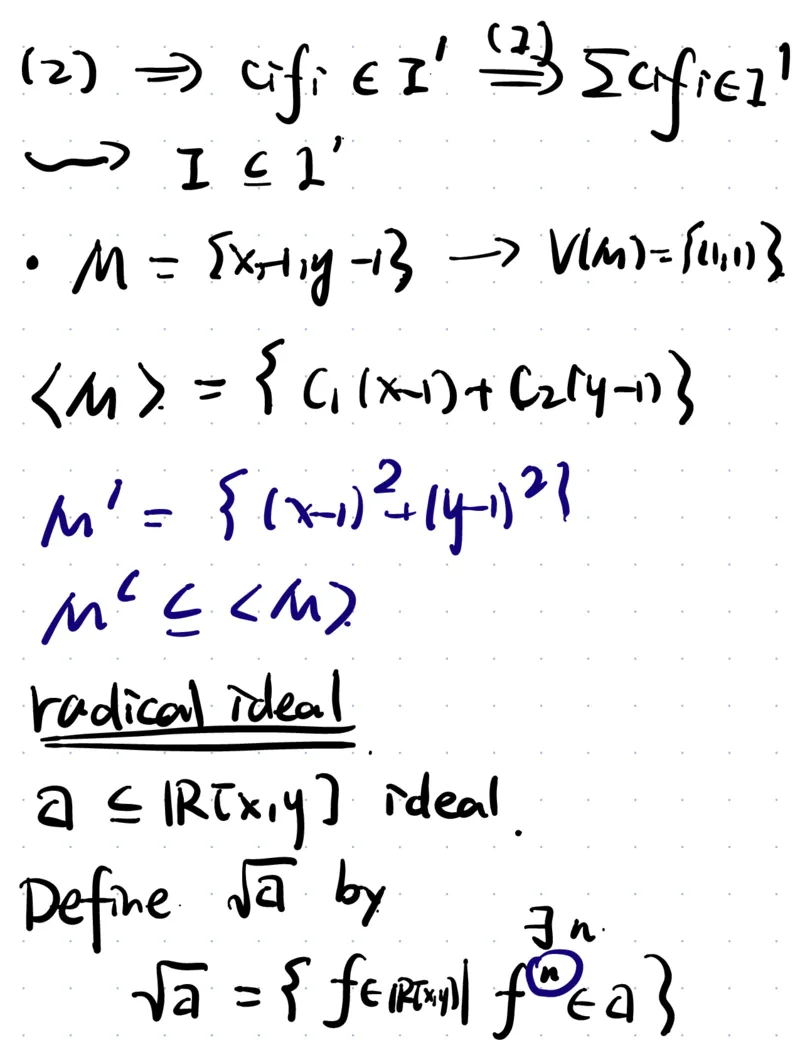 (2) ⟹ cifi ∈ I' (1)⟹ Σcifi∈I'
⟿ I ⊆ I'
• M = {x-1, y-1} → V(M)={(1,1)}
<M> = { C₁(x-1) + C₂(y-1)}
M' = { (x-1)² + (y-1)²}
M' ⊆ <M>
radical ideal
a ⊆ ℝ[x,y] ideal.
Define √a by
∃ n.
√a = { f∈ℝ[x,y] | fⁿ ∈ a }